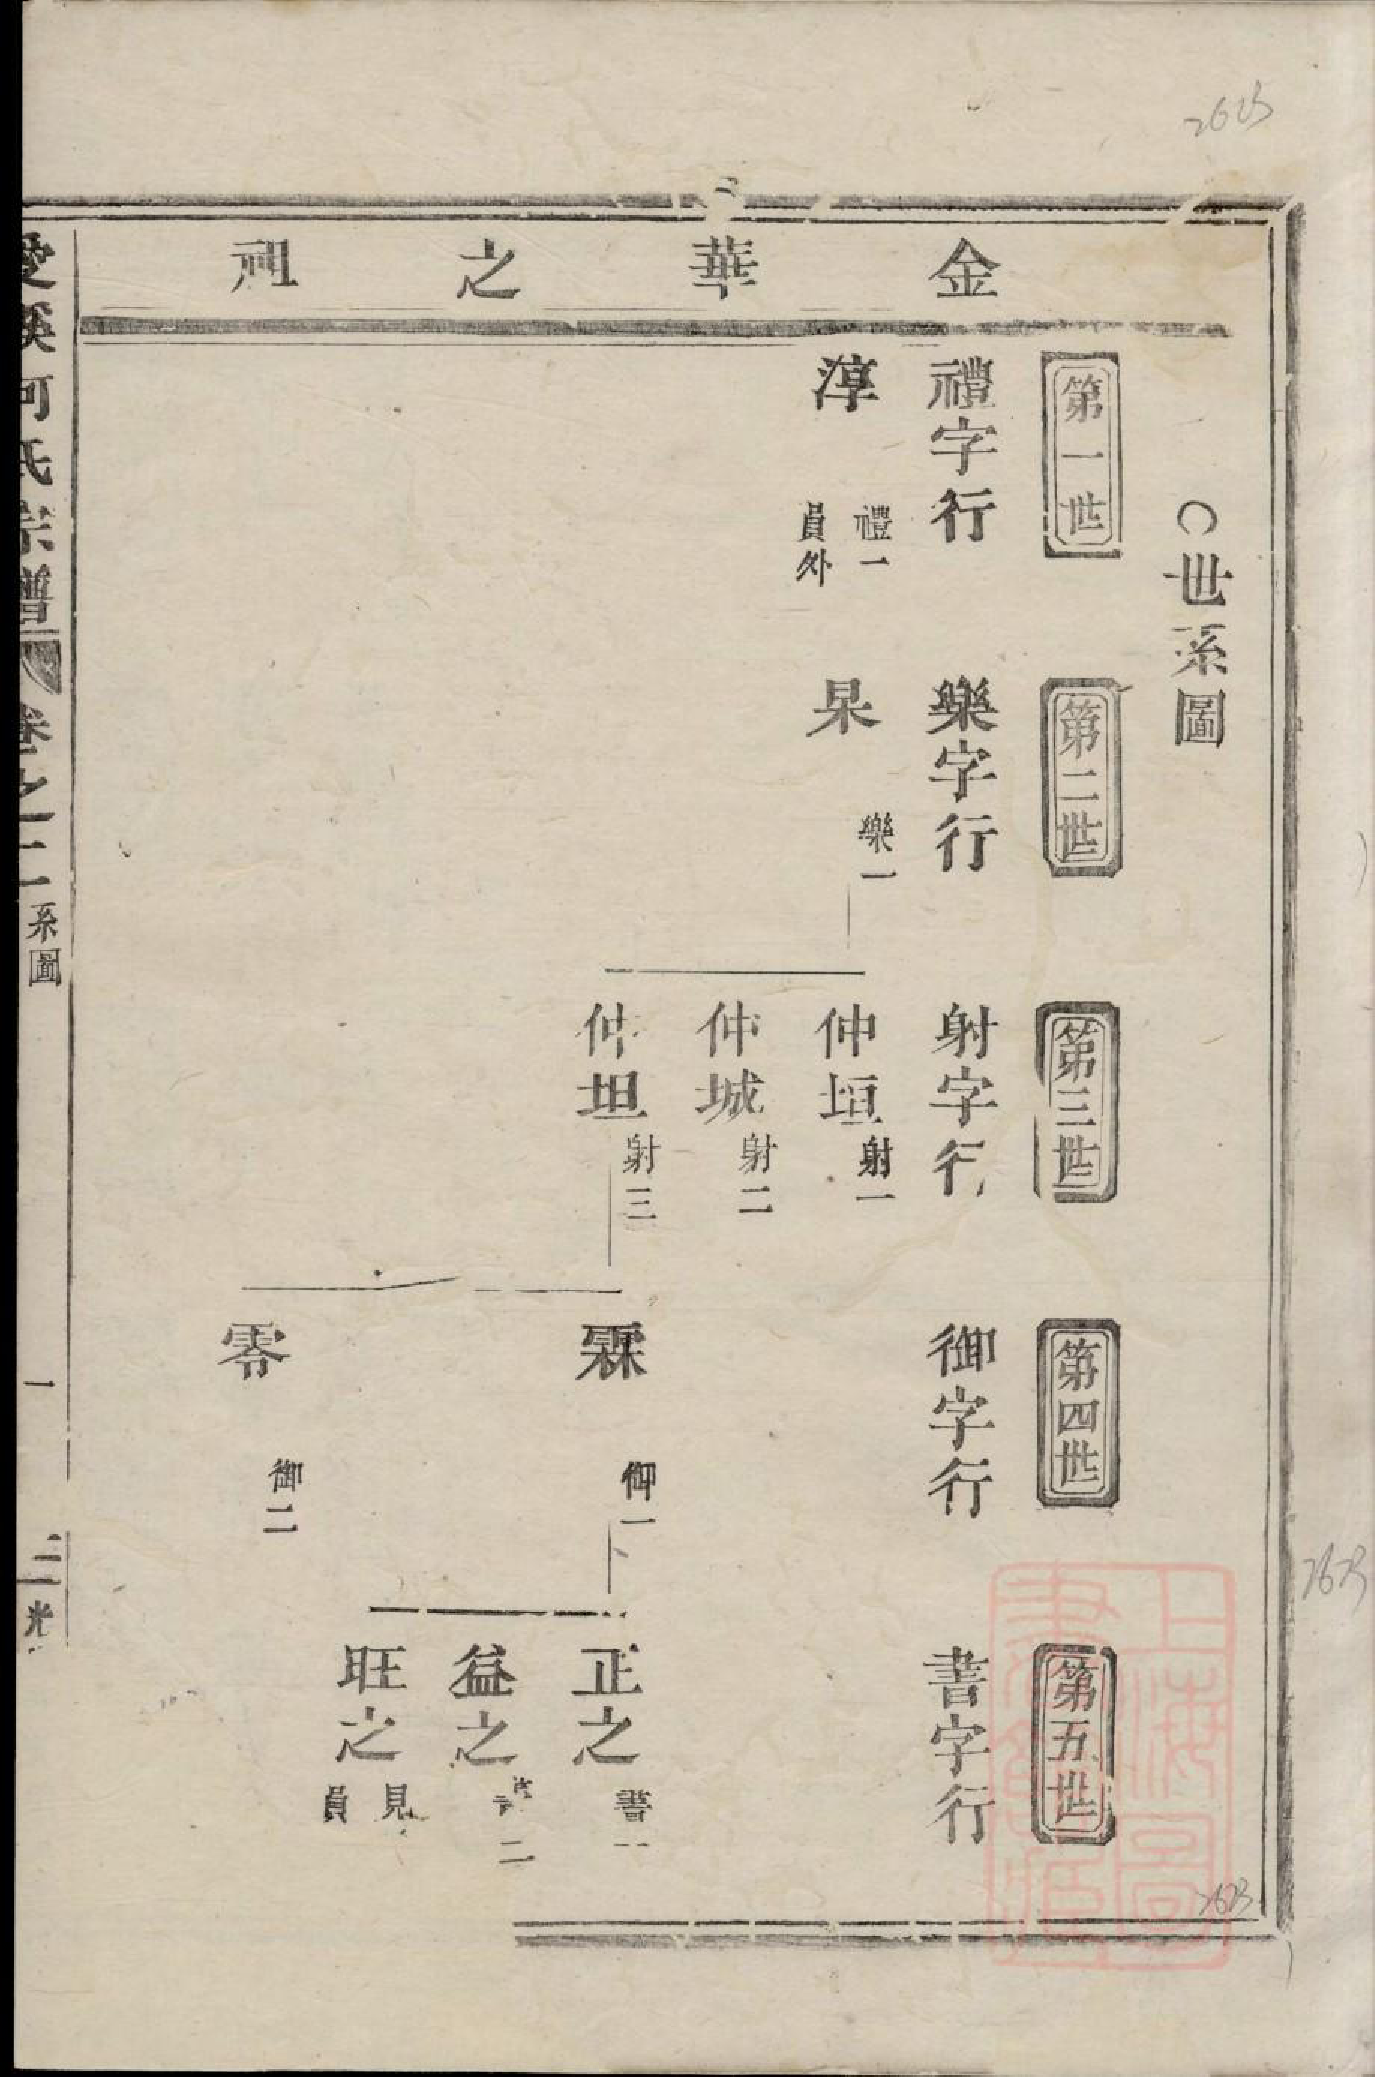 金華之祖
○世系圖
第一世
禮字行
淳
禮一
員外
第二世
樂字行
杲
樂一
第三世
射字行
仲垣
射一
仲城
射二
仲坦
射三
第四世
御字行
霖
御一
零
御二
第五世
書字行
正之
書一
益之
二
旺之
見
員
何氏宗譜
卷之二
系圖
一
上海圖書館藏
2623
2623
2623